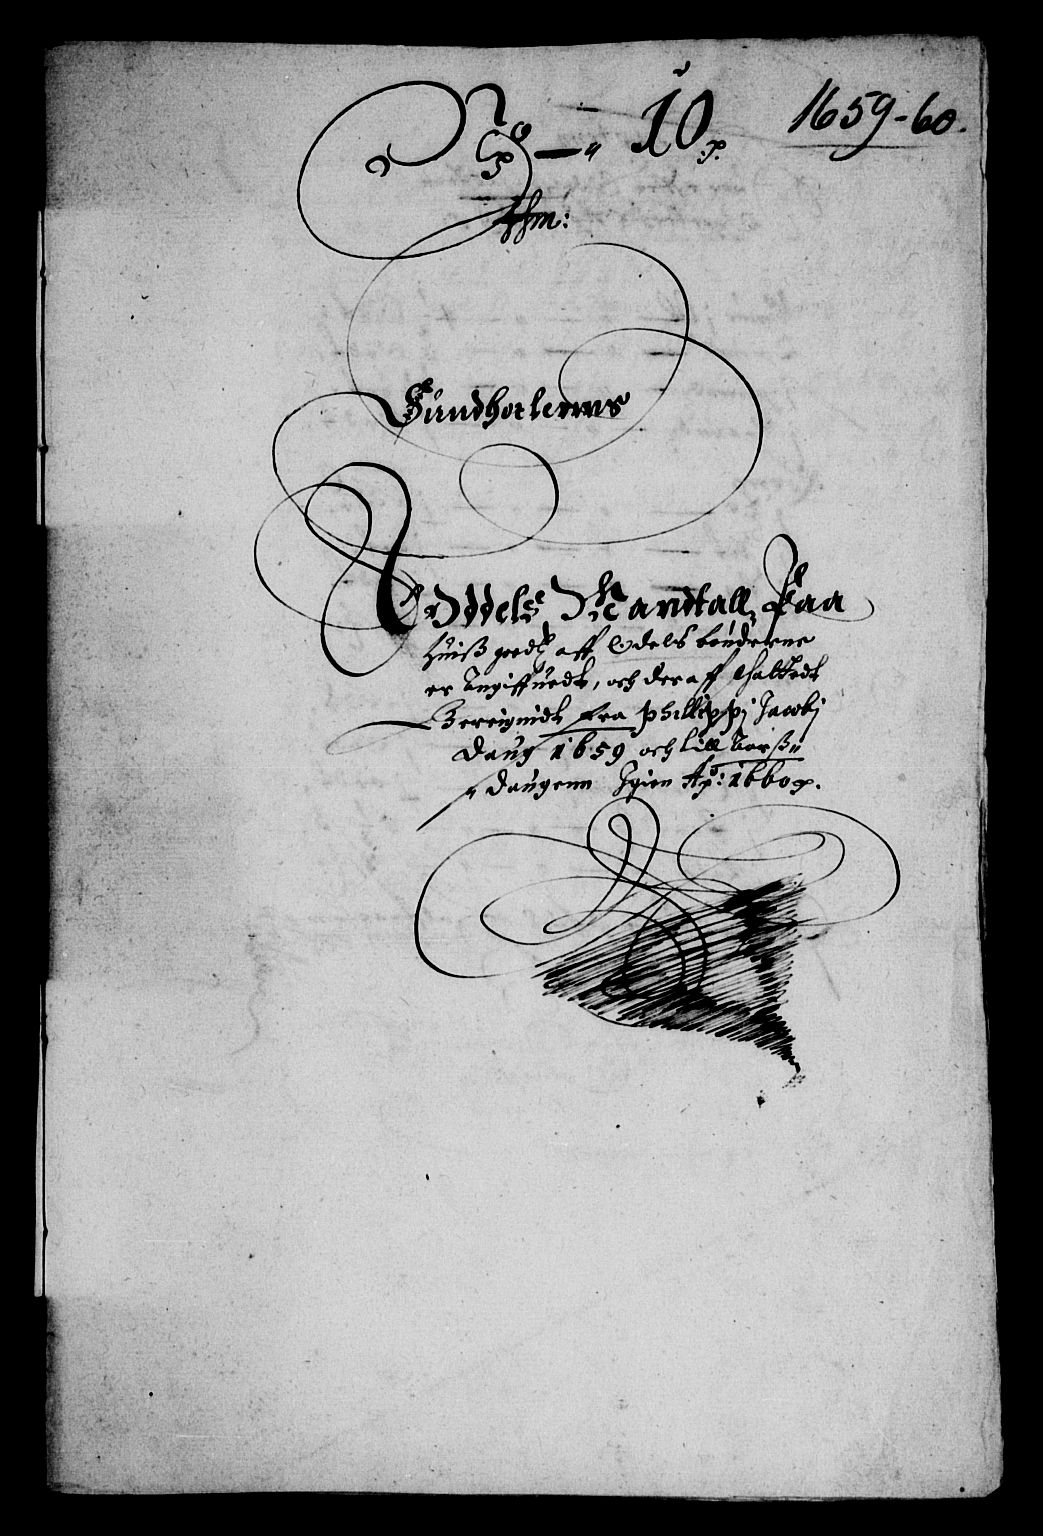 1659-60.
No 10
Sundhorlernes
Oddels Mandtall, Paa
huiß godtz aff Odels bønderne
er Angiffuedt, och deraff schattedt
Bereignidt fra Phillippj Jacobj
daug 1659 och till Aarß
daugenn Igien Aº: 1660.